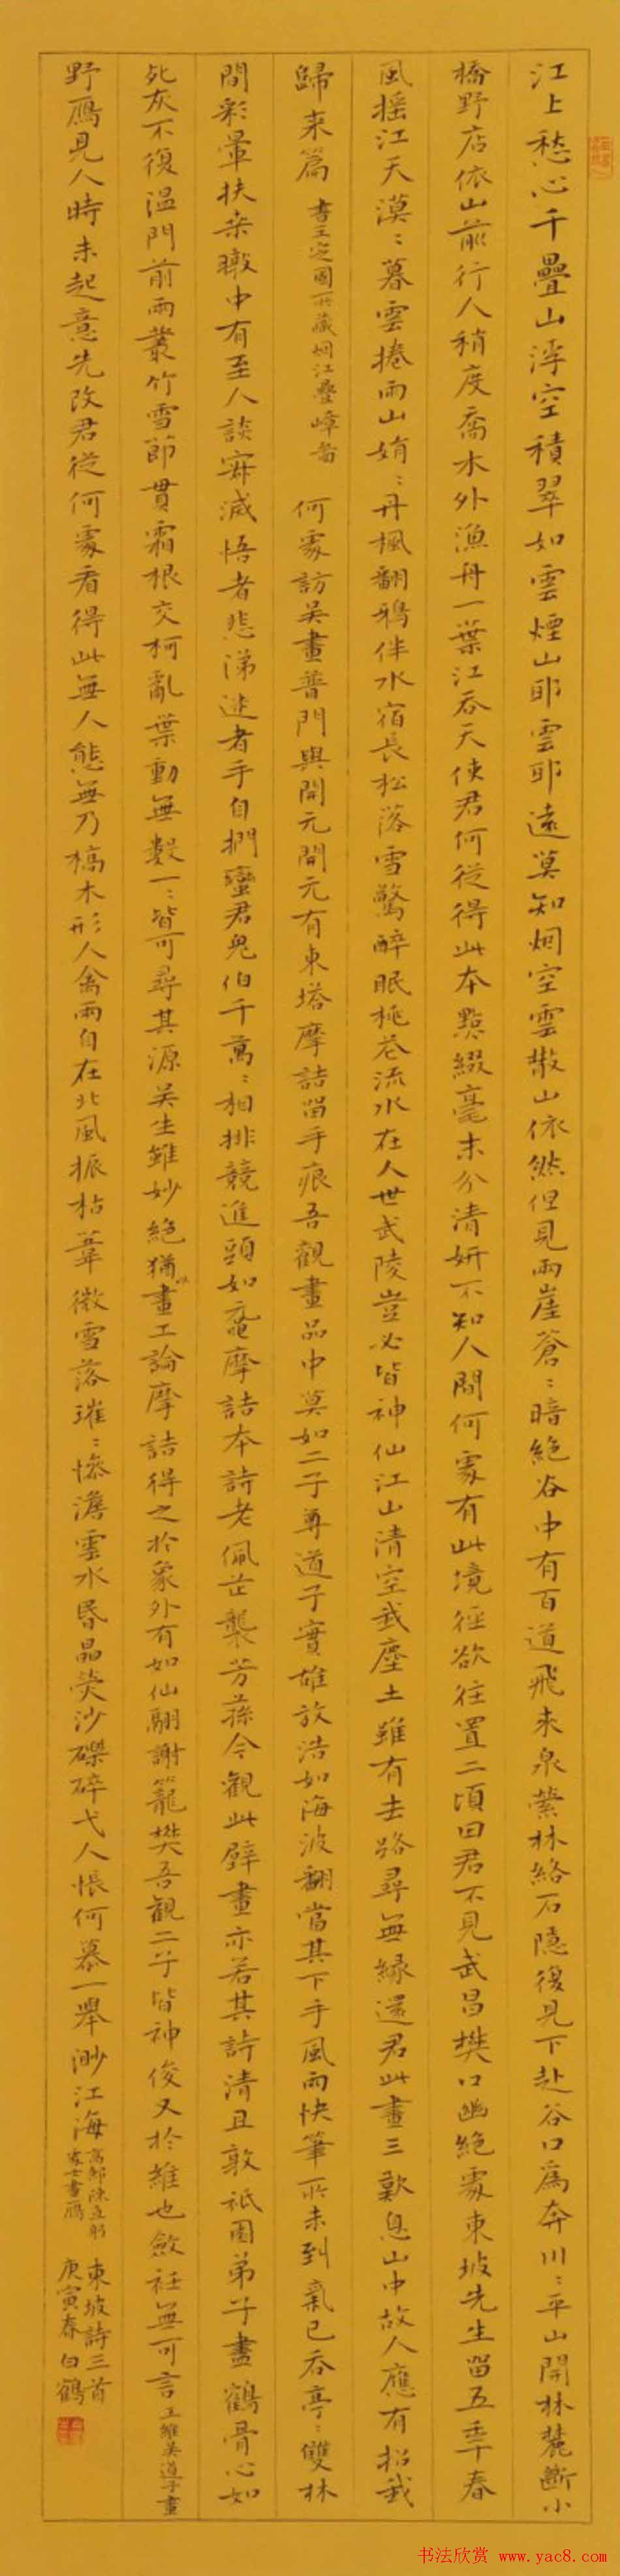 江上愁心千疊山浮空積翠如雲煙山耶雲耶遠莫知烟空雲散山依然但見兩崖蒼〻暗絶谷中有百道飛来泉縈林絡石隱復見下赴谷口為奔川〻平山開林麓斷小
橋野店依山前行人稍度喬木外漁舟一葉江吞天使君何從得此本點綴毫末分清妍不知人間何處有此境徑欲往置二頃田君不見武昌樊口幽絶處東坡先生留五年春
風搖江天漠〻暮雲捲雨山娟〻丹楓翻鴉伴水宿長松落雪驚醉眠桃花流水在人世武陵豈必皆神仙江山清空我塵土雖有去路尋無緣還君此畫三歎息山中故人應有招我
歸来篇 書王定國所藏烟江疊嶂圖 何處訪吳畫普門與開元開元有東塔摩詰留手痕吾觀畫品中莫如二子尊道子實雄放浩如海波翻當其下手風雨快筆所未到氣已吞亭〻雙林
間彩暈扶桑暾中有至人談寂滅悟者悲涕迷者手自捫蠻君鬼伯千萬〻相排競進頭如黿摩詰本詩老佩芷襲芳蓀今觀此壁畫亦若其詩清且敦祇園弟子盡鶴骨心如
死灰不復温門前兩叢竹雪節貫霜根交柯亂葉動無數一〻皆可尋其源吳生雖妙絶猶以畫工論摩詰得之於象外有如仙翮謝籠樊吾觀二子皆神俊又於維也斂衽無可言 王維吳道子畫
野雁見人時未起意先改君從何處看得此無人態無乃槁木形人禽兩自在北風振枯葦微雪落璀〻慘澹雲水昏晶熒沙礫碎弋人悵何慕一舉渺江海 高郵陳直躬處士畫雁
東坡詩三首
庚寅春白鶴
书法欣赏 www.yac8.com